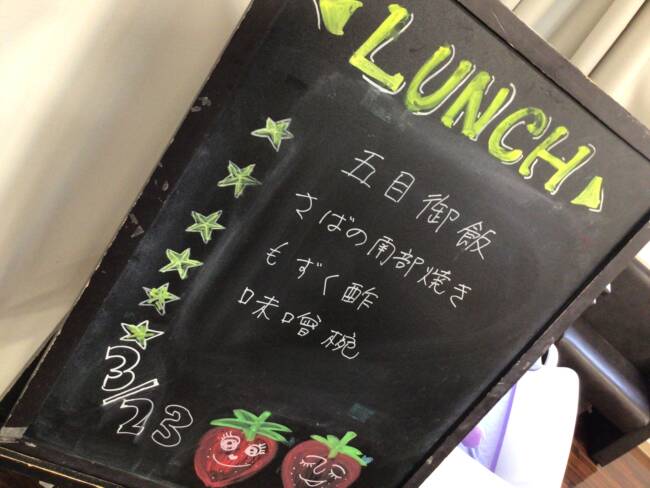 LUNCH
五目御飯
さばの南部焼き
もずく酢
味噌椀
3/23